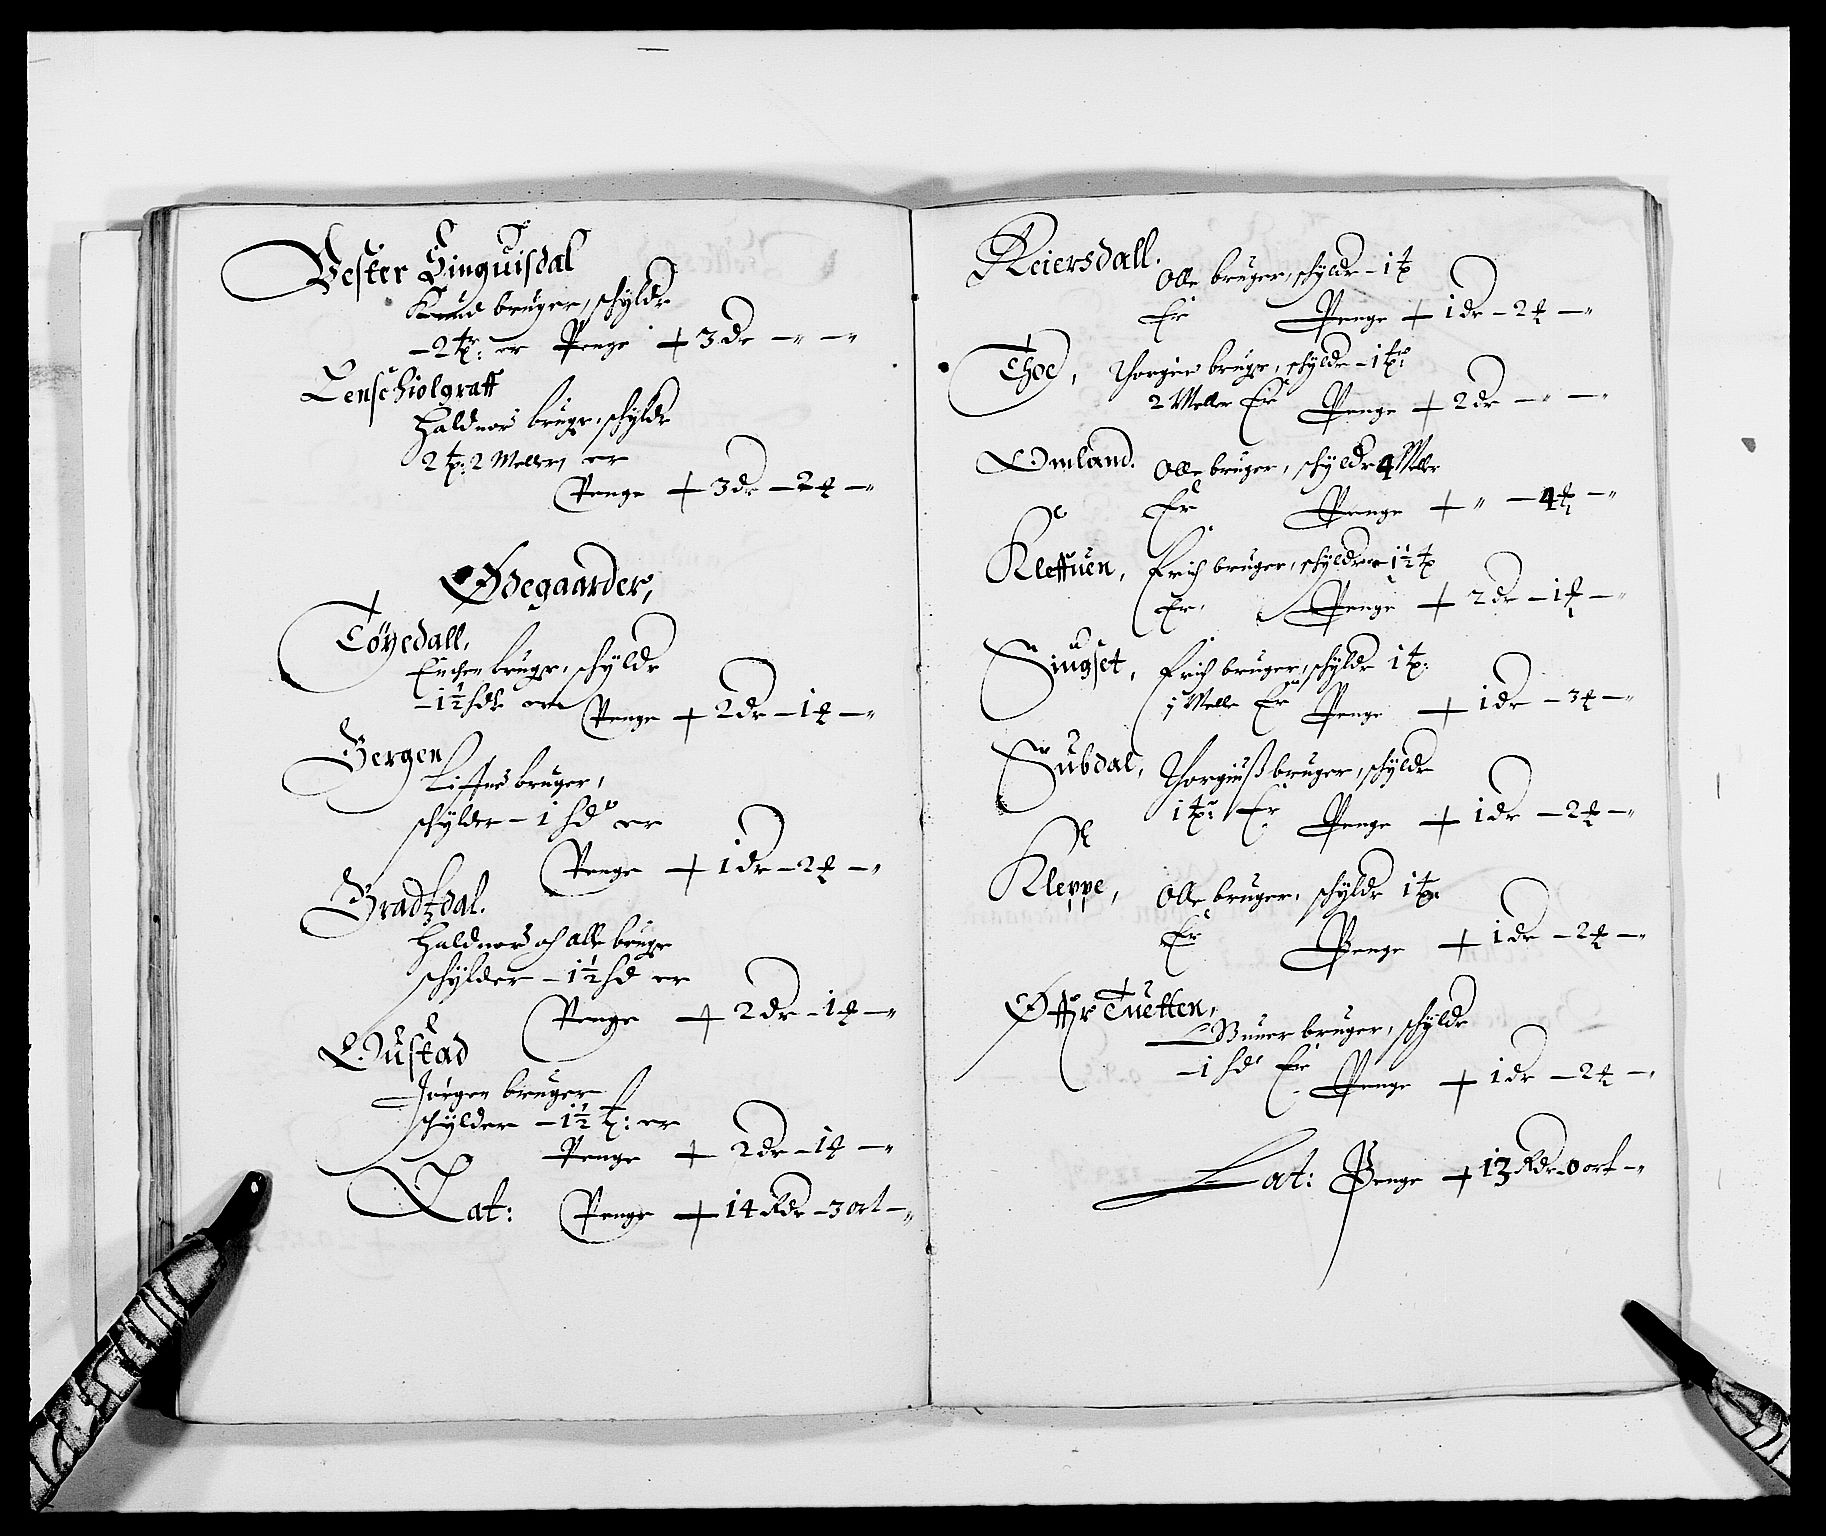 Vester Singuisdal
Knud bruger, schylde
– 2 tp: er Penge + 3 dr – " – "
Lenschiolgraff
Halduor bruger, schylde
2 tp: 2 Meller, er
Penge + 3 dr – 2 ß – "
Ødegaarder,
Tøyedall,
bruger, schylde
– 1½ hd er Penge + 2 dr – 1 ß – "
Bergen
bruger,
schylder – 1 hd er
Penge + 1 dr – 2 ß – "
Bradtzdal.
Halduor och Alle bruger
schylder – 1½ hd er
Penge + 2 dr – 1 ß – "
Oustad
Jørgen bruger
schylder – 1½ t: er
Penge + 2 dr – 1 ß – "
Lat: Penge + 14 Rdr – 3 ort – "
Reiersdall.
Olle bruger, schylde – 1 tp
Er Penge + 1 dr – 2 ß – "
Thoe, Thorgier bruger, schylde – 1 tp:
2 Meller Er Penge + 2 dr – " – "
Omland. Olle bruger, schylde 4 Mellr
Er Penge + " – 4 ß – "
Kleffuen, Erich bruger, schylder 1½ tp
Er. Penge + 2 dr – 1 ß – "
Siugset, Erich bruger, schylde 1 tp:
1 Melle Er Penge + 1 dr – 3 ß – "
Subdal, Thorgiuß bruger, schylde
1 tp: Er Penge + 1 dr – 2 ß – "
Kleppe, Olle bruger, schylde 1 tp:
Er Penge + 1 dr – 2 ß – "
Øffr Tuetten,
Gunner bruger, schylde
– 1 hd Er Penge + 1 dr – 2 ß – "
Lat: Penge + 13 Rdr – 0 ort – "